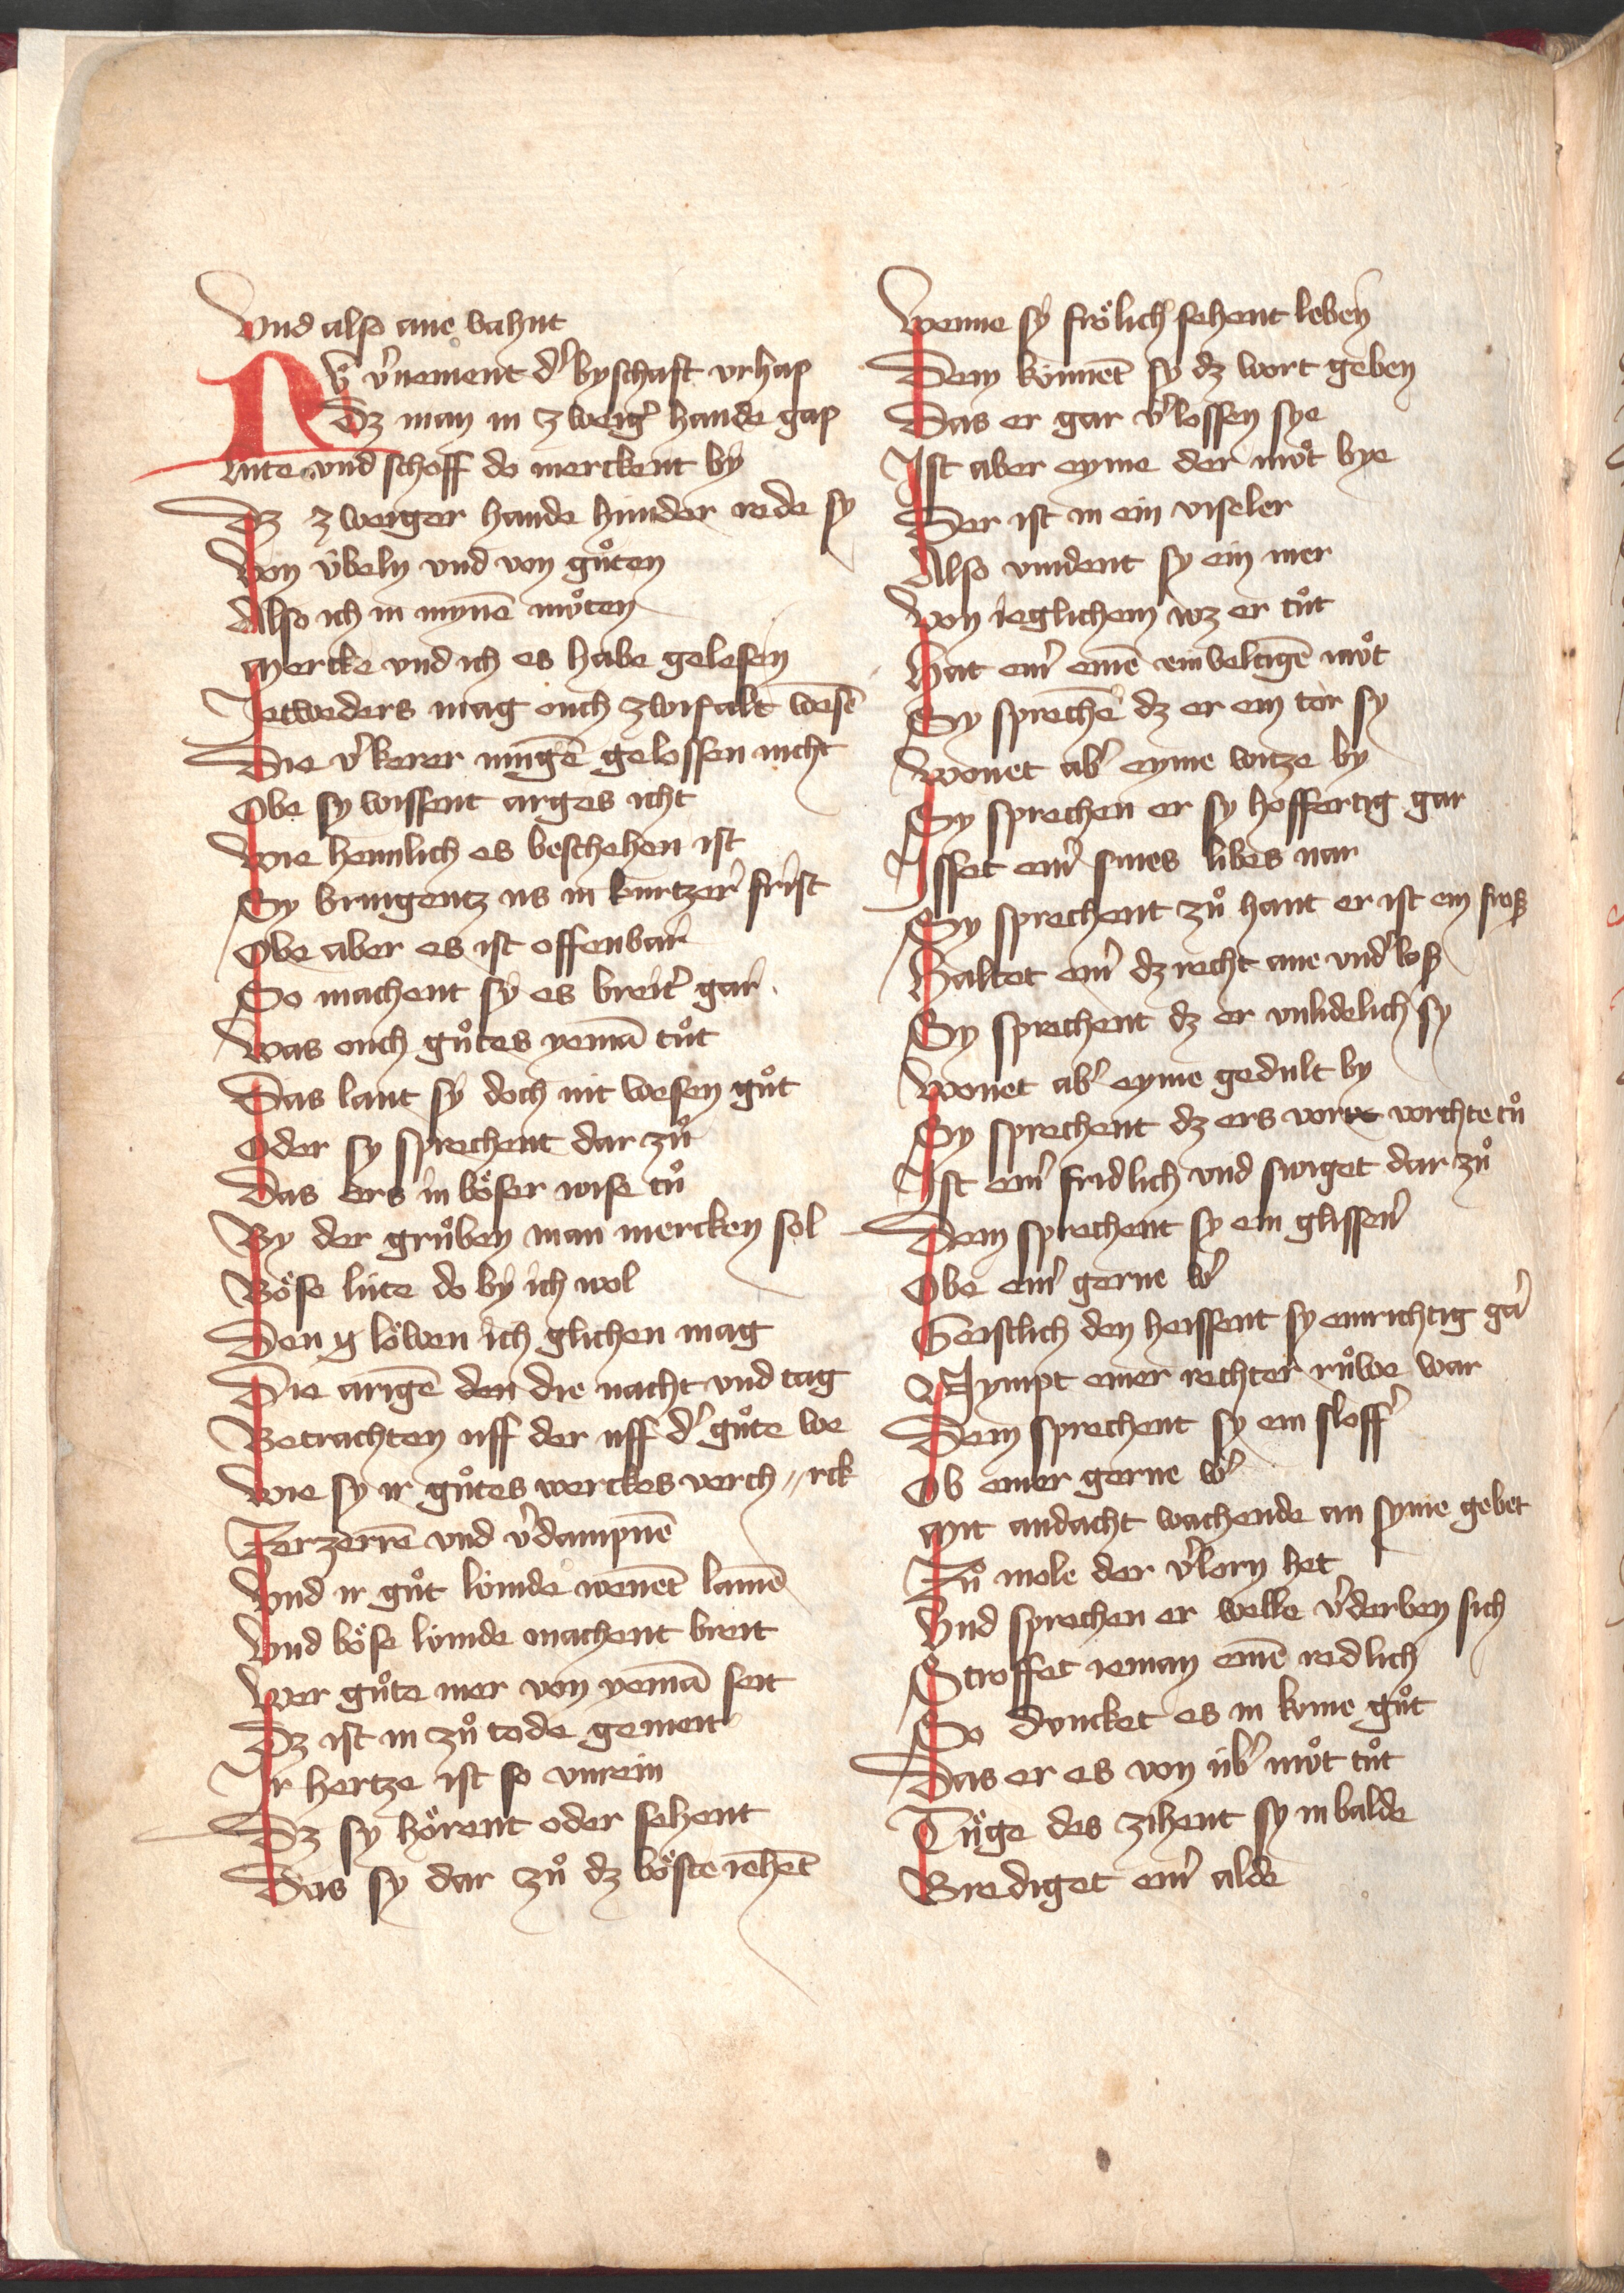 Vnd also ane vahnt
Nv̍ v̾nement d̾ byschaft vrhap
Dz man in zweig̾ hande gap
Lute vnd schoff do merckent by
Dz zweiger hande hunder rede sy
Von v̈beln vnd von gůten
Also ich in mynē mv̊ten
Mercke vnd ich es habe gelesen
Jetweders mag ouch zwifalt wesē
Die v̾kerer mugē gelossen nicht
Obe sy wissent arges icht
Wie heimlich es beschehen ist
Sy bringentz us in kurtzer frist
Obe aber es ist offenbar
So machent sy es breit̾ gar
Was ouch gůtes yemā tůt
Das lant sy doch nit wesen gůt
Oder sy sprechent dar zů
Das ers in böser wise tů
By der grůben man mercken sol
Böse lüte do by ich wol
Den löwen ich glichen mag
Die argē den die nacht vnd tag
Betrachten uff der uff d̾ gůte we
Wie sy ir gůtes werckes verch〃rck
Zerzerrē vnd v̾dampnē
Vnd ir gůt lömde wenēt lamē
Vnd böse lömde machent breit
Wer gůte mer von yemā seit
Dz ist in zů tode gemeit
Ir hertze ist so vnrein
Dz sy hörent oder sehent
Das sy dar zů dz böste iehēt
Wenne sy frölich sehent leben
Dem kōnnēt sy dz wort geben
Das er gar v̾lossen sye
Ist aber eyme der mv̊t bye
Der ist in ein viseler
Also vindent sy ein mer
Von ieglichem wz er tůt
Hat ein̾ einē einveltigē mv̊t
Sy sprechē dz er ein tor sy
Wonet ab̾ eyme witze by
Sy sprechen er sy hoffertig gar
Isset ein̾ sines libes nar
Sy sprechent zů hant er ist ein froß
Haltet ein̾ dz recht ane vnd̾loß
Sy sprechent dz er vnlidelich sy
Wonet ab̾ eyme gedult by
Sy sprechent dz ers vor vorchte tů
Ist ein̾ fridlich vnd swiget dar zů
Dem sprechent sy ein glissen̾
Obe ein̾ gerne w̾
Geistlich den heissent sy einrichtig ga̾
Nympt einer rechter růwe war
Dem sprechent sy ein sloff̾
Ob einer gerne w̾
Mit andacht wachende an syme gebet
Zů mole der v̾lorn het
Vnd sprechen er welle v̾derben sich
Stroffet ieman einē redlich
So duncket es in kyme gůt
Das er es von üb̾ mv̊t tůt
Tüge des zihent sy in balde
Brediget ein̾ alde